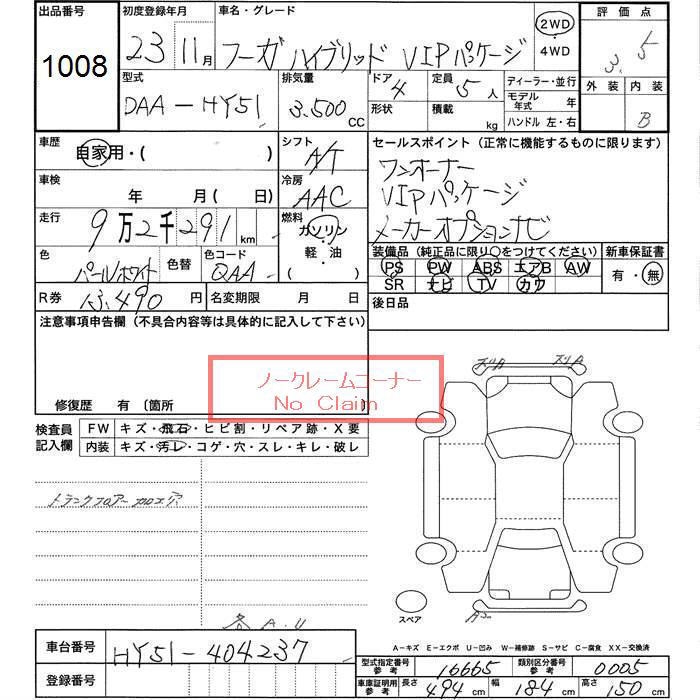 出品番号 初度登録年月 車名・グレード 評価点
1008 23年 11月 フーガ ハイブリッド VIPパッケージ 2WD 4WD 3.5
型式 排気量 ドア 4 定員 5人 ディーラー・並行 外装 内装
DAA-HY51 3.500 CC 形状 積載 kg モデル年式 年 B
ハンドル 左・右
車歴 自家用・( ) シフト A/T セールスポイント(正常に機能するものに限ります)
ワンオーナー
車検 年 月( 日) 冷房 AAC VIPパッケージ
走行 9万2千291km 燃料 ガソリン 軽・油 ( ) メーカーオプションナビ
色 パールホワイト 色替 色コード QAA 装備品(純正品に限り○をつけてください) 新車保証書
PS PW ABS エアB AW 有・無
SR ナビ TV カワ
R券 13,490円 名変期限 月 日 後日品
注意事項申告欄(不具合内容等は具体的に記入して下さい)
ノークレームコーナー
No Claim
修復歴 有〔箇所 〕
検査員記入欄 FW キズ・飛石・ヒビ割・リペア跡・X要
内装 キズ・汚レ・コゲ・穴・スレ・キレ・破レ
ズリA ズリA
トランクフロアー カロエア
スペア
各A.U
A-キズ E-エクボ U-凹み W-補修跡 S-サビ C-腐食 XX-交換済
車台番号 HY51-404237
型式指定番号 参考 16665 類別区分番号 参考 0005
登録番号
車庫証明用 参考 長さ 494cm 幅 184cm 高さ 150cm